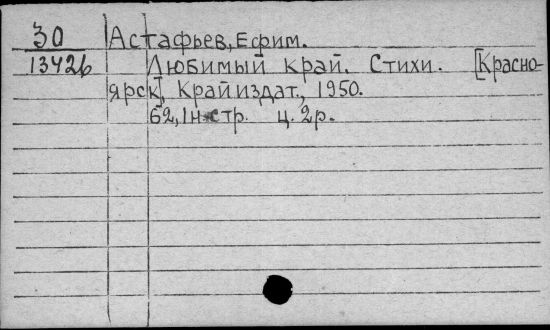 30 Астафьев, Ефим.
13426 Любимый край. Стихи. [Красно-
ярск], Крайиздат, 1950.
62, 1н стр. ц. 2р.